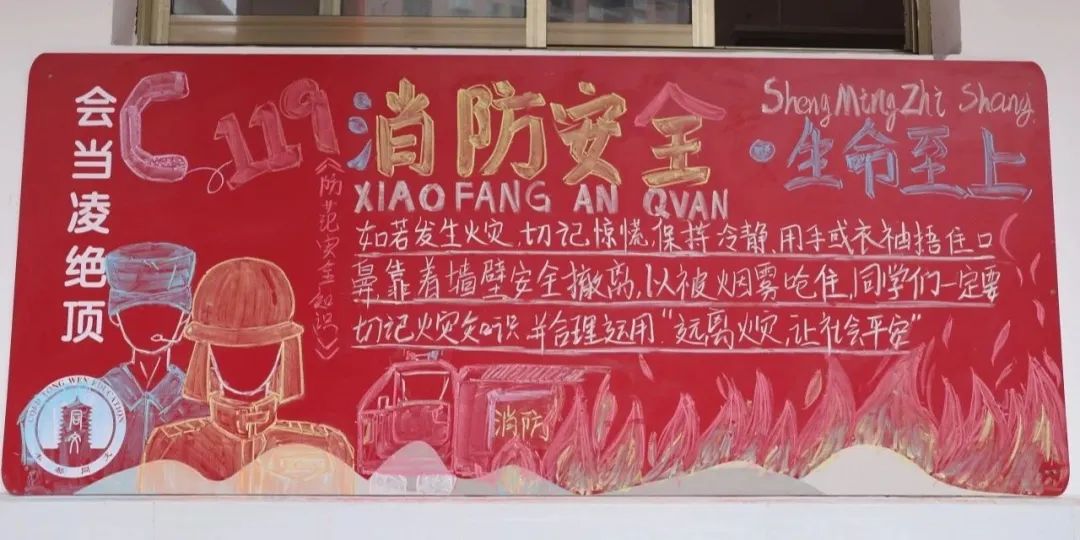 会当凌绝顶
119
消防安全
XIAO FANG AN QVAN
Sheng Ming Zhi Shang
生命至上
《防范安全知识》
如若发生火灾,切记惊慌,保持冷静,用手或衣袖捂住口
鼻,靠着墙壁安全撤离,以被烟雾呛住,同学们一定要
切记火灾知识并合理运用“远离火灾,让社会平安”
消防
TONG WEN EDUCATION
同文